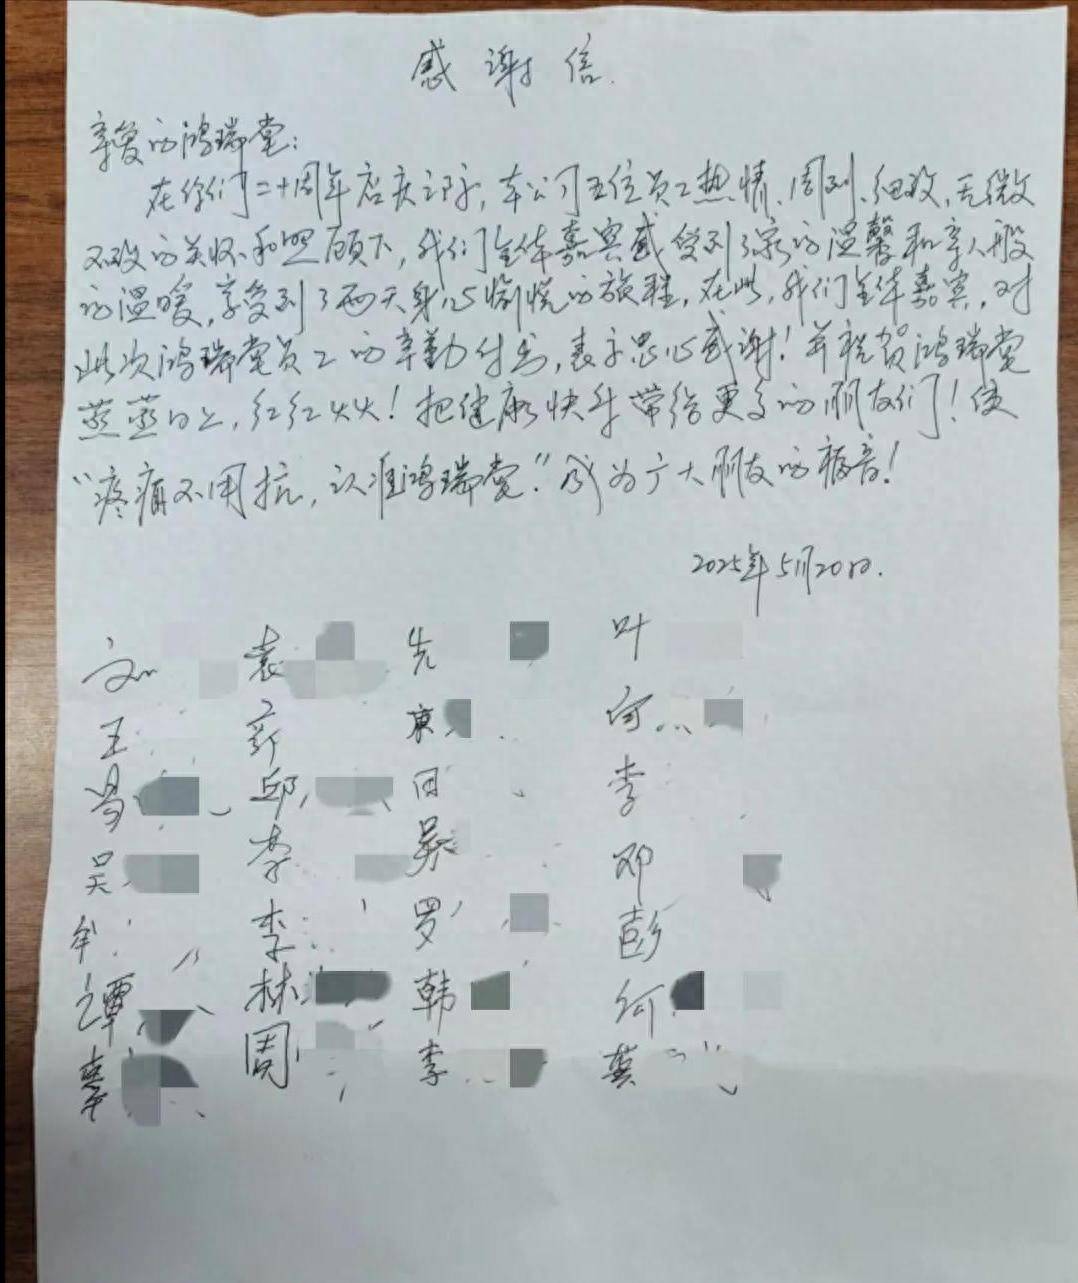 感谢信
亲爱的鸿瑞堂:
在你们二十周年店庆之际,本公司五位员工热情、周到、细致,无微
不致的关怀和照顾下,我们全体嘉宾感受到了家的温馨和亲人般
的温暖,享受到了两天身心愉悦的旅程,在此,我们全体嘉宾,对
此次鸿瑞堂员工的辛勤付出,表示忠心感谢!并祝贺鸿瑞堂
蒸蒸日上,红红火火!把健康快乐带给更多的朋友们!使
“疼痛不用抗,认准鸿瑞堂.”成为广大朋友的福音!
2025年5月20日.
文 袁 先 叶
王 东 何
邱 田 李
吴 李 吴 邓
李 罗 彭
谭 林 韩 何
秦 周 李 龚